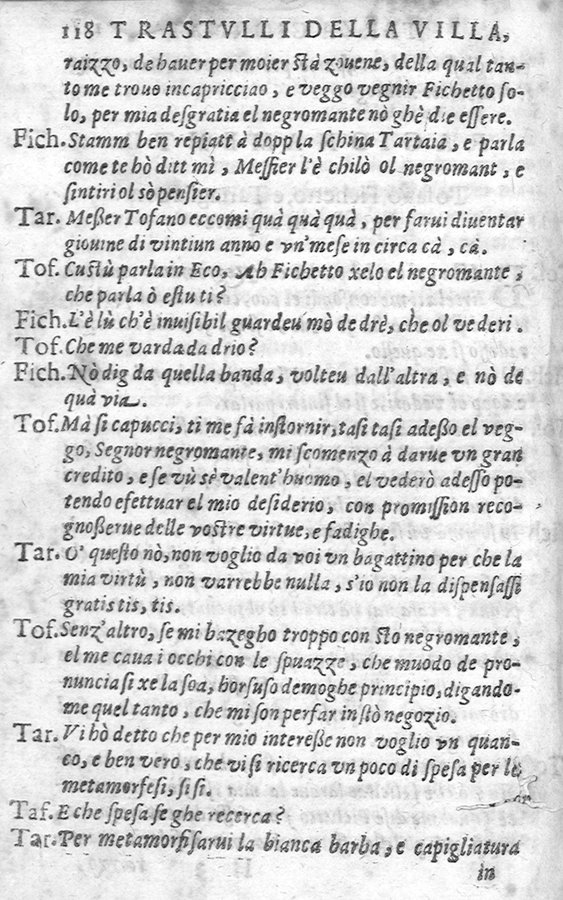 118 TRASTVLLI DELLA VILLA,
raizzo, de hauer per moier stà zouene, della qual tan-
to me trouo incapricciao, e veggo vegnir Fichetto so-
lo, per mia desgratia el negromante nò ghè die essere.
Fich. Stamm ben repiatt à dopp la schina Tartaia, e parla
come te hò ditt mì, Messier l'è chilò ol negromant, e
sintiri ol sò pensier.
Tar. Meßer Tofano eccomi quà quà quà, per farui diuentar
giouine di vintiun anno e vn'mese in circa cà, cà.
Tof. Custù parla in Eco, Ah Fichetto xelo el negromante,
che parla ò estu ti?
Fich. L'è lù ch'è inuisibil guardeu mò de drè, che ol vederi.
Tof. Che me varda da drio?
Fich. Nò dig da quella banda, volteu dall'altra, e nò de
quà via.
Tof. Mà si capucci, ti me fà instornir, tasi tasi adeßo el veg-
go, Segnor negromante, mi scomenzo à darue vn gran
credito, e se vù sè valent'huomo, el vederò adesso po-
tendo efettuar el mio desiderio, con promission reco-
gnoßerue delle vostre virtue, e fadighe.
Tar. O' questo nò, non voglio da voi vn bagattino per che la
mia virtù, non varrebbe nulla, s'io non la dispensassi
gratis tis, tis.
Tof. Senz'altro, se mi bazegho troppo con sto negromante,
el me caua i occhi con le spuazze, che muodo de pro-
nuncia si xe la soa, horsuso demoghe principio, digando-
me quel tanto, che mi son per far in stò negozio.
Tar. Vi hò detto che per mio intereße non voglio vn quan-
co, e ben vero, che vi si ricerca vn poco di spesa per le
metamorfesi, si si.
Taf. E che spesa se ghe recerca?
Tar. Per metamorfisarui la bianca barba, e capigliatura
in